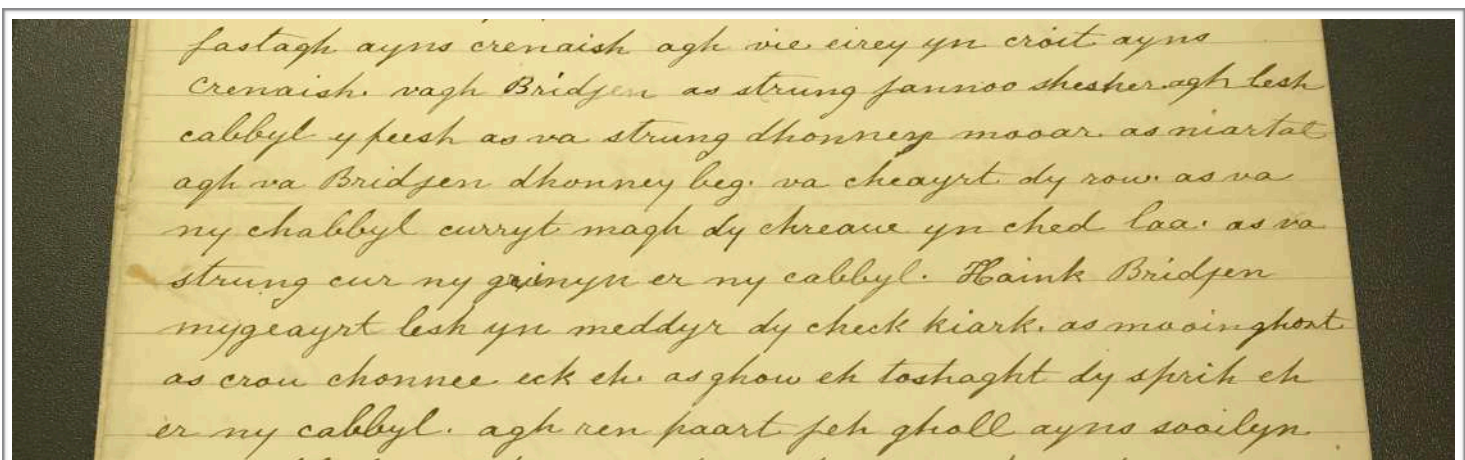 fastagh ayns crenaish agh vie eirey yn croit ayns
crenaish. vagh Bridjen as strung jannoo shesher agh lesh
cabbyl y feesh as va strung dhonney mooar. as niartal
agh va Bridjen dhonney beg. va cheayrt dy row. as va
ny chabbyl curryt magh dy chreaue yn ched laa. as va
strung cur ny grinyn er ny cabbyl. Haink Bridjen
mygeayrt lesh yn meddyr dy check kiark. as mooin ghoxt
as crou chonnee eck eh. as ghow eh toshaght dy sprih eh
er ny cabbyl. agh ren paart jeh gholl ayns sooilyn